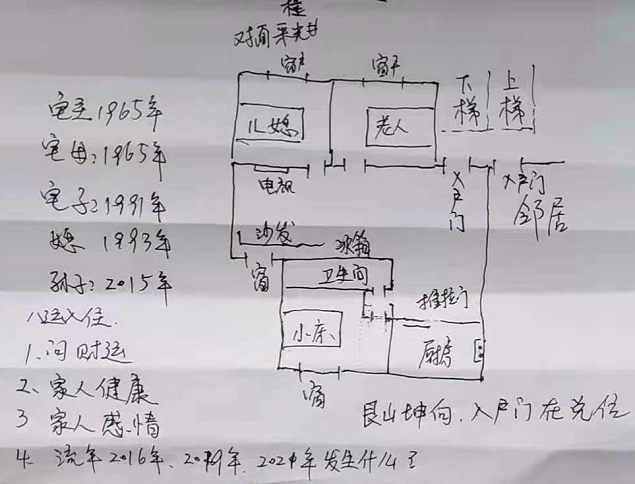 对面采光井
窗户
窗户
下梯
上梯
儿媳
老人
宅主1965年
宅母:1965年
宅子:1991年
媳 1993年
孙子:2015年
八运入住.
1.问财运
2、家人健康
3 家人感情
4. 流年2016年、2019年、2021年发生什么
电视
入户门
入户门
邻居
沙发
冰箱
窗
卫生间
推拉门
小床
厨房
窗
艮山坤向.入户门在兑位